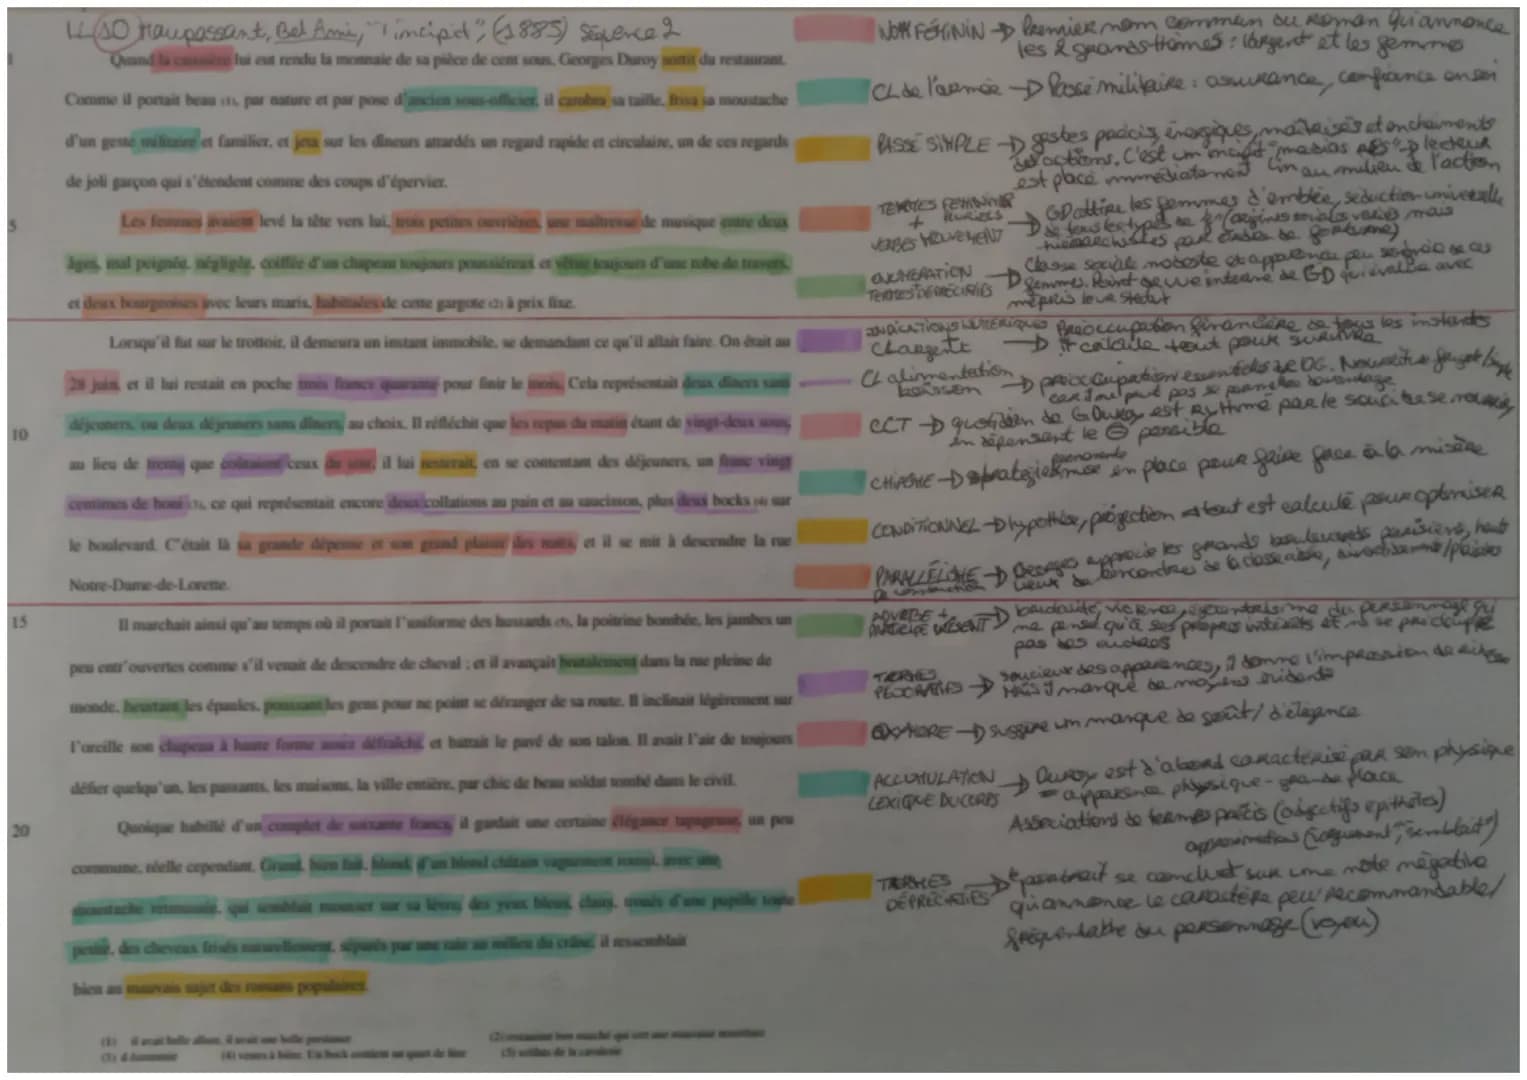 LL 10 Maupassant, Bel Ami, "l'incipit", (1885) Séquence 2
1
Quand la caissière lui eut rendu la monnaie de sa pièce de cent sous, Georges Duroy sortit du restaurant.
Comme il portait beau (1), par nature et par pose d'ancien sous-officier, il cambra sa taille, frisa sa moustache
d'un geste militaire et familier, et jeta sur les dîneurs attardés un regard rapide et circulaire, un de ces regards
de joli garçon qui s'étendent comme des coups d'épervier.
5
Les femmes avaient levé la tête vers lui, trois petites ouvrières, une maîtresse de musique entre deux
âges, mal peignée, négligée, coiffée d'un chapeau toujours poussiéreux et vêtue toujours d'une robe de travers,
et deux bourgeoises avec leurs maris, habituées de cette gargote (2) à prix fixe.
Lorsqu'il fut sur le trottoir, il demeura un instant immobile, se demandant ce qu'il allait faire. On était au
28 juin, et il lui restait en poche trois francs quarante pour finir le mois. Cela représentait deux dîners sans
10
déjeuners, ou deux déjeuners sans dîners, au choix. Il réfléchit que les repas du matin étant de vingt-deux sous,
au lieu de trente que coûtaient ceux du soir, il lui resterait, en se contentant des déjeuners, un franc vingt
centimes de boni (3), ce qui représentait encore deux collations au pain et au saucisson, plus deux bocks (4) sur
le boulevard. C'était là sa grande dépense et son grand plaisir des nuits, et il se mit à descendre la rue
Notre-Dame-de-Lorette.
15
Il marchait ainsi qu'au temps où il portait l'uniforme des hussards (5), la poitrine bombée, les jambes un
peu entr'ouvertes comme s'il venait de descendre de cheval ; et il avançait brutalement dans la rue pleine de
monde, heurtant les épaules, poussant les gens pour ne point se déranger de sa route. Il inclinait légèrement sur
l'oreille son chapeau à haute forme assez défraîchi, et battait le pavé de son talon. Il avait l'air de toujours
défier quelqu'un, les passants, les maisons, la ville entière, par chic de beau soldat tombé dans le civil.
20
Quoique habillé d'un complet de soixante francs, il gardait une certaine élégance tapageuse, un peu
commune, réelle cependant. Grand, bien fait, blond, d'un blond châtain vaguement roussi, avec une
moustache retroussée, qui semblait mousser sur sa lèvre, des yeux bleus, clairs, troués d'une pupille toute
petite, des cheveux frisés naturellement, séparés par une raie au milieu du crâne, il ressemblait
bien au mauvais sujet des romans populaires.
(1) il avait belle allure, il avait une belle prestance
(2) restaurant bon marché qui sert une mauvaise nourriture
(3) d'économie
(4) verres à bière. Un bock contient un quart de litre
(5) soldats de la cavalerie
NOM FÉMININ → Premier nom commun du roman qui annonce
les 2 grands thèmes : l'argent et les femmes
CL de l'armée → Passé militaire : assurance, confiance en soi
PASSÉ SIMPLE → gestes précis, énergiques, maîtrisés et enchaînements
des actions. C'est un incipit "medias res" → lecteur
est placé immédiatement au milieu de l'action
TERMES FÉMININS + PLURIELS
VERBES MOUVEMENT → GD attire les femmes d'emblée, séduction universelle
de tous les types de f (origines sociales variées mais
hiérarchisées par ordre de fortune)
ENUMÉRATION
TERMES DÉPRÉCIATIFS → Classe sociale modeste et apparence peu soignée de ces
femmes. Point de vue interne de GD qui évalue avec
mépris leur statut
INDICATIONS NUMÉRIQUES
CL argent → Préoccupation financière de tous les instants
it calcule tout pour survivre
CL alimentation
boisson → préoccupation essentielle de DG. Nourriture
car il ne peut pas se permettre davantage
CCT → quotidien de G Duroy est rythmé par le souci de se nourrir,
en dépensant le ⊖ possible
CHIASME → stratégie permanente mise en place pour faire face à la misère
CONDITIONNEL → hypothèse, projection tout est calculé pour optimiser
PARALLÉLISME
de construction → Georges apprécie les grands boulevards parisiens, hauts
lieux de rencontres de la classe aisée, divertissements/plaisirs
ADVERBE +
PARTICIPE PRÉSENT → brutalité, violence, égocentrisme du personnage qui
ne pense qu'à ses propres intérêts et ne se préoccupe
pas des autres
TERMES
PÉJORATIFS → soucieux des apparences, il donne l'impression de
Mais manque de moyens évidents
OXYMORE → suggère un manque de goût / d'élégance
ACCUMULATION
LEXIQUE DU CORPS → Duroy est d'abord caractérisé par son physique
= apparence physique - grande place
Associations de termes précis (adjectifs épithètes)
approximation ("vaguement", "semblait")
TERMES
DÉPRÉCIATIFS → portrait se conclut sur une note négative
qui annonce le caractère peu recommandable/
fréquentable du personnage (voyou)